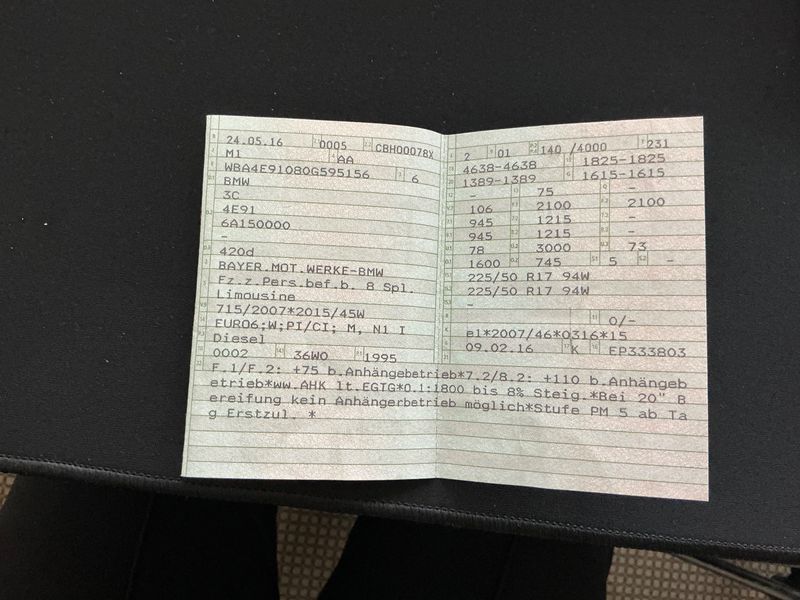 24.05.16 0005 CBH00078X
M1 AA
WBA4E91080G595156 6
BMW
3C
4E91
6A150000
-
420d
BAYER.MOT.WERKE-BMW
Fz.z.Pers.bef.b. 8 Spl.
Limousine
715/2007*2015/45W
EURO6;W;PI/CI; M, N1 I
Diesel
0002 36W0 1995
2 01 140 /4000 231
4638-4638 1825-1825
1389-1389 1615-1615
- 75 -
106 2100 2100
945 1215 -
945 1215 -
78 3000 73
1600 745 5 -
225/50 R17 94W
225/50 R17 94W
-
0/-
e1*2007/46*0316*15
09.02.16 K EP333803
F.1/F.2: +75 b.Anhängebetrieb*7.2/8.2: +110 b.Anhängeb
etrieb*ww.AHK lt.EGTG*O.1:1800 bis 8% Steig.*Bei 20" B
ereifung kein Anhängerbetrieb möglich*Stufe PM 5 ab Ta
g Erstzul. *